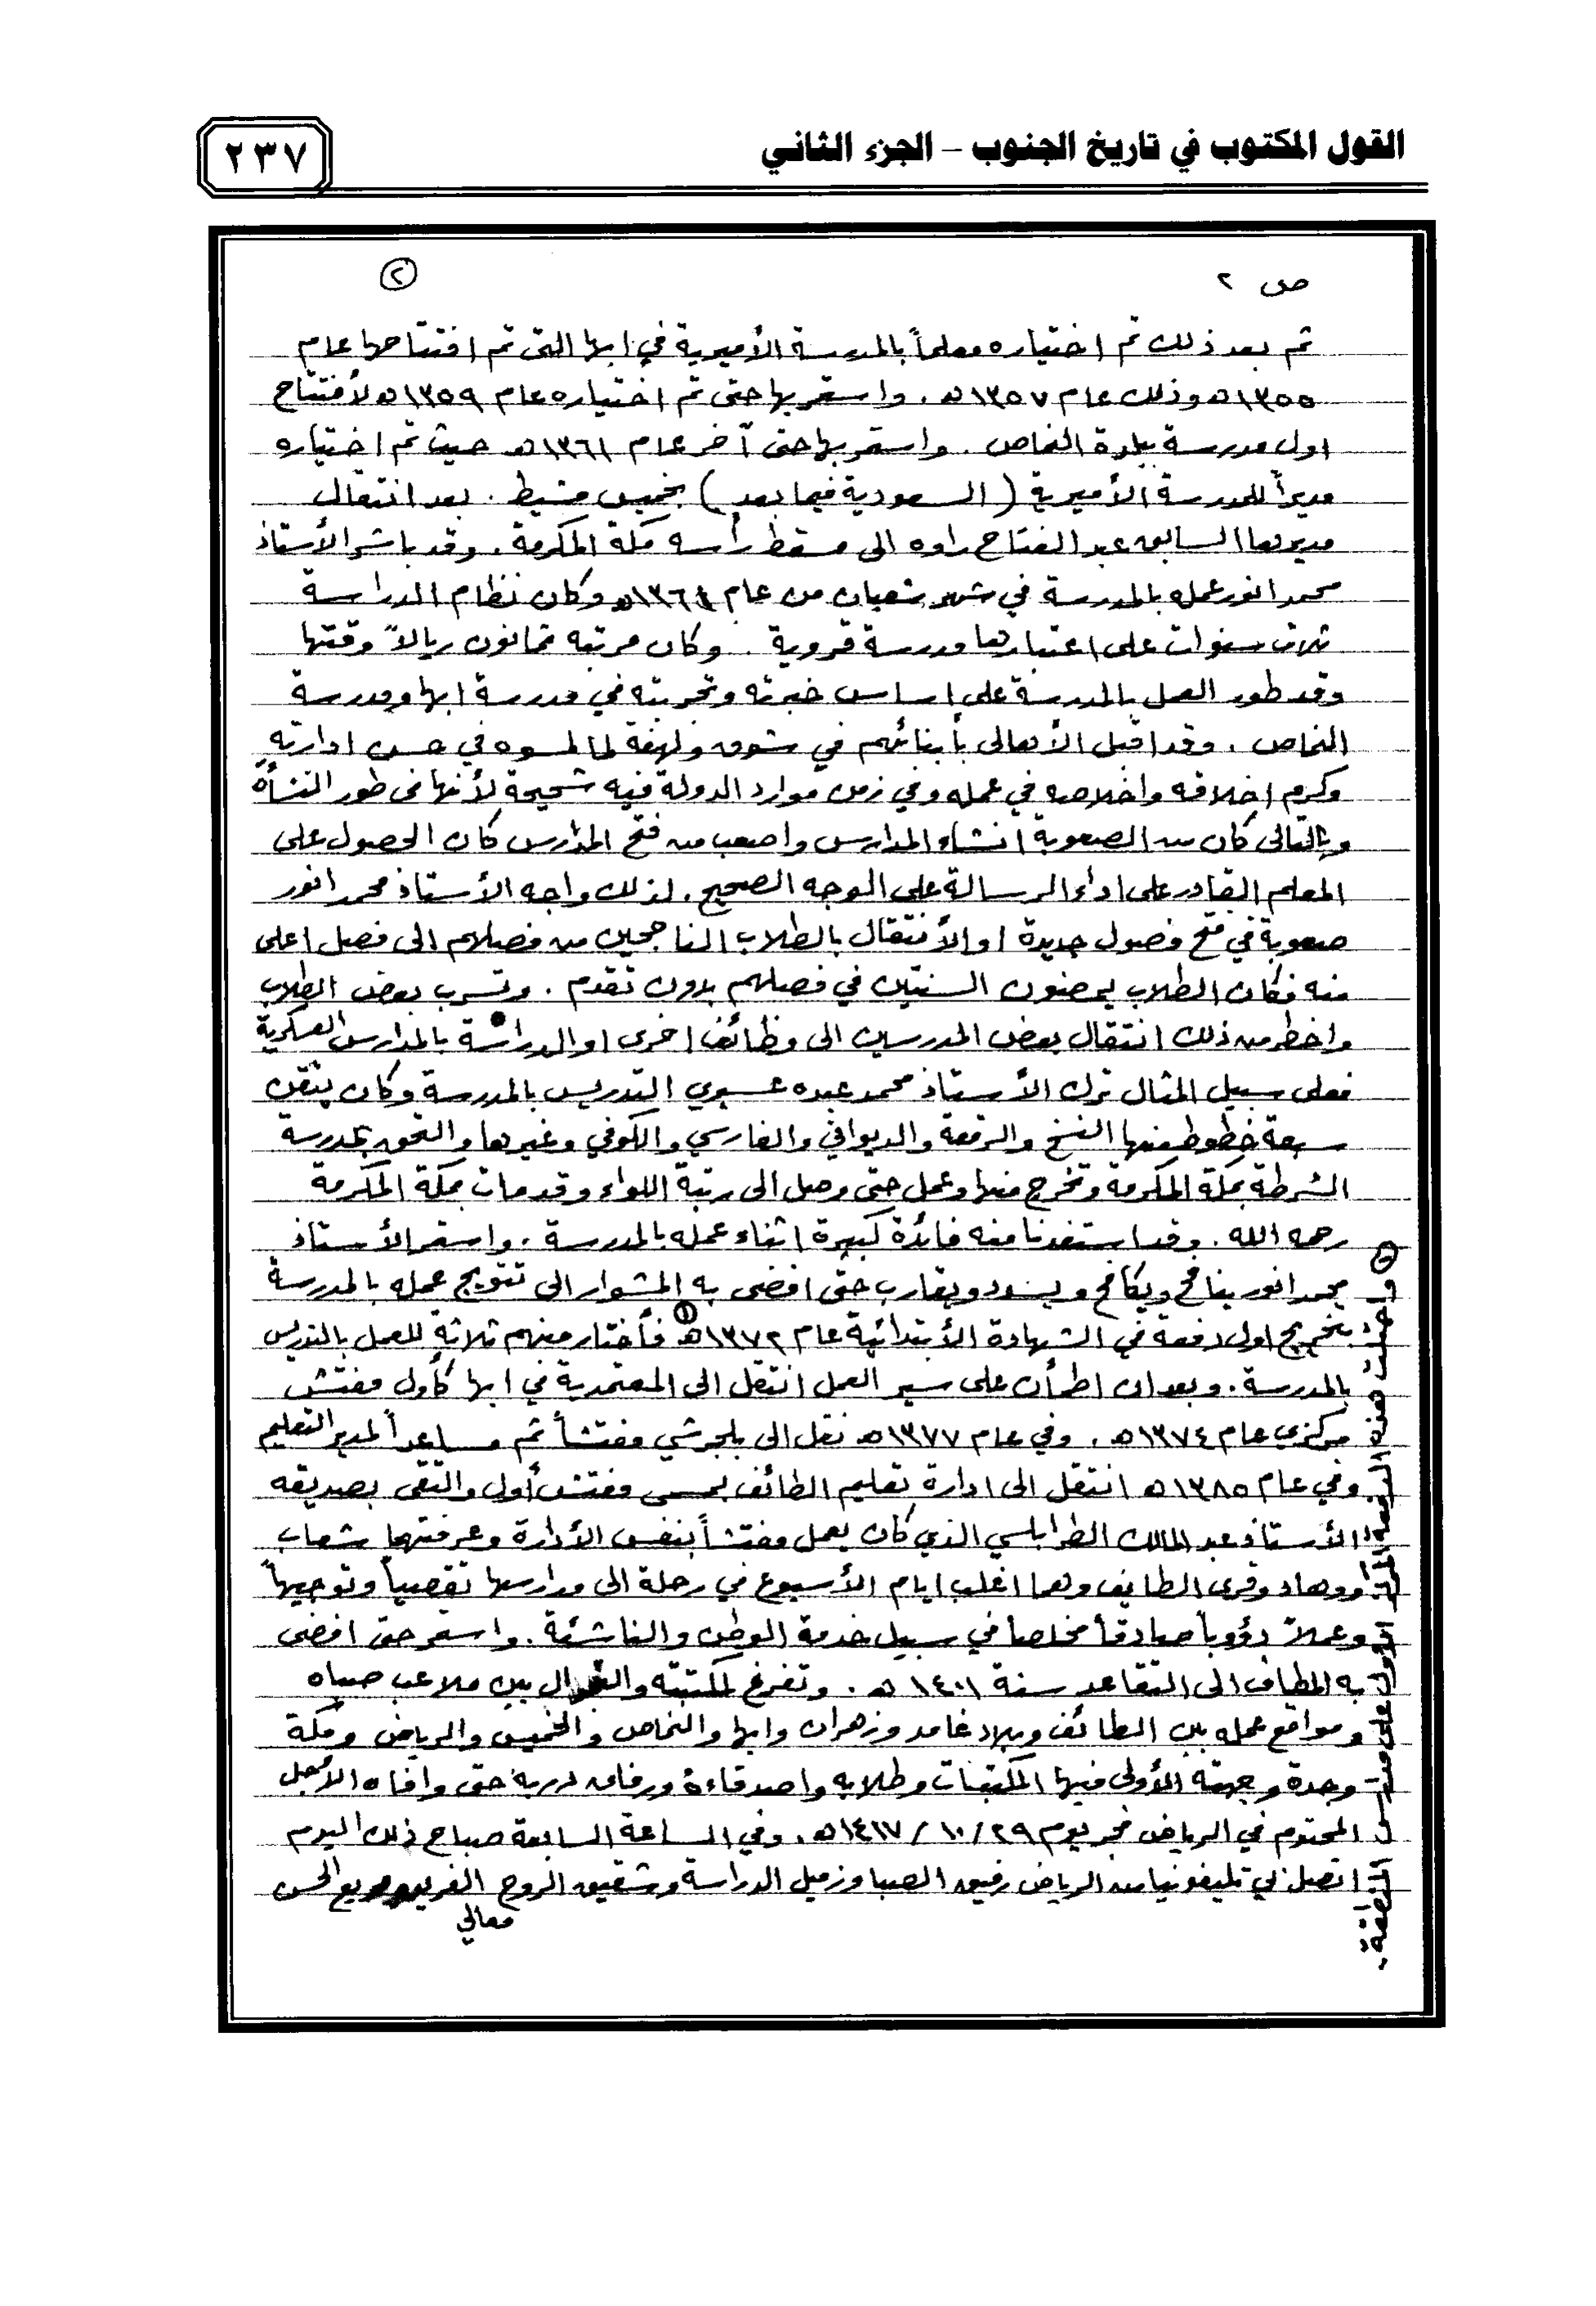 القول المكتوب في تاريخ الجنوب – الجزء الثاني
٢٣٧
ص ٢
٢
ثم بعد ذلك تم اختياره معلماً بالمدرسة الأميرية في ابها التي تم افتتاحها عام
١٣٥٥هـ وذلك عام ١٣٥٧هـ. واستمر بها حتى تم اختياره عام ١٣٥٩هـ لأفتتاح
اول مدرسة ببلدة النماص. واستمر بها حتى آخر عام ١٣٦١هـ حيث تم اختياره
مديراً للمدرسة الأميرية (السعودية فيما بعد) بخميس مشيط. بعد انتقال
مديرها السابق عبد الفتاح راوه الى مسقط رأسه مكة المكرمة. وقد باشر الأستاذ
محمد انور عمله بالمدرسة في شهر شعبان من عام ١٣٦١هـ وكان نظام الدراسة
ثلاث سنوات على اعتبارها مدرسة قروية. وكان مرتبه ثمانون ريالاً وقتها
وقد طور العمل بالمدرسة على اساس خبرته وتجربته في مدرسة ابها ومدرسة
النماص. وقد اقبل الأهالى بأبنائهم في شوق ولهفة لما لمسوه في حسن ادارته
وكرم اخلاقه واخلاصه في عمله وفي زمن موارد الدولة فيه شحيحة لأنها في طور النشأة
وبالتالى كان من الصعوبة انشاء المدارس واصعب من فتح المدارس كان الحصول على
المعلم القادر على اداء الرسالة على الوجه الصحيح. لذلك واجه الأستاذ محمد انور
صعوبة في فتح فصول جديدة او الأنتقال بالطلاب الناجحين من فصيلهم الى فصل اعلى
منه فكان الطلاب يمضون السنتين في فصيلهم بدون تقدم. وتسرب بعض الطلاب
واخطر من ذلك انتقال بعض المدرسين الى وظائف اخرى او الدراسة بالمدارس العسكرية
فعلى سبيل المثال ترك الأستاذ محمد عبده عسيري التدريس بالمدرسة وكان يتقن
سبعة خطوط منها النسخ والرقعة والديواني والفارسي والكوفي وغيرها والتحق بمدرسة
الشرطة بمكة المكرمة وتخرج منها وعمل حتى وصل الى رتبة اللواء وقد مات بمكة المكرمة
رحمه الله. وقد استفدنا منه فائدة كبيرة اثناء عمله بالمدرسة. واستمر الأستاذ
محمد انور ينافح ويكافح ويسدد ويقارب حتى افضى به المشوار الى تتويج عمله بالمدرسة
بتخريج اول دفعة في الشهادة الأبتدائية عام ١٣٧٢هـ(١) فأختار منهم ثلاثة للعمل بالتدريس
بالمدرسة. وبعد ان اطمأن على سير العمل انتقل الى المعتمدية في ابها كأول مفتش
مركزي عام ١٣٧٤هـ. وفي عام ١٣٧٧هـ نقل الى بلجرشي مفتشاً ثم مساعداً لمدير التعليم
وفي عام ١٣٨٥هـ انتقل الى ادارة تعليم الطائف بمسمى مفتش أول والتقى بصديقه
الأستاذ عبد المالك الطرابلسي الذي كان يعمل مفتشاً بنفس الأدارة وعرفتهما شعاب
ووهاد وقرى الطائف وهما اغلب ايام الأسبوع في رحلة الى مدارسها تقصياً وتوجيهاً
وعملاً دؤوباً صادقاً مخلصاً في سبيل خدمة الوطن والناشئة. واستمر حتى افضى
به المطاف الى التقاعد سنة ١٤٠١هـ. وتفرغ لمكتبته والتجوال بين ملاعب صباه
ومواقع عمله بين الطائف وبلاد غامد وزهران وابها والنماص والخميس والرياض ومكة
وجدة وجهته الأولى فيها المكتبات وطلابه واصدقاءه ورفاق دربه حتى وافاه الأجل
المحتوم في الرياض فجر يوم ٢٩/١٠/١٤١٧هـ. وفي الساعة السابعة صباح ذلك اليوم
اتصل بي تليفونيا من الرياض رفيق الصبا وزميل الدراسة وشقيق الروح الفريق الحسن
معالي
(١) واحتلت هذه الدفعة المركز الأول على مدارس المنطقة.